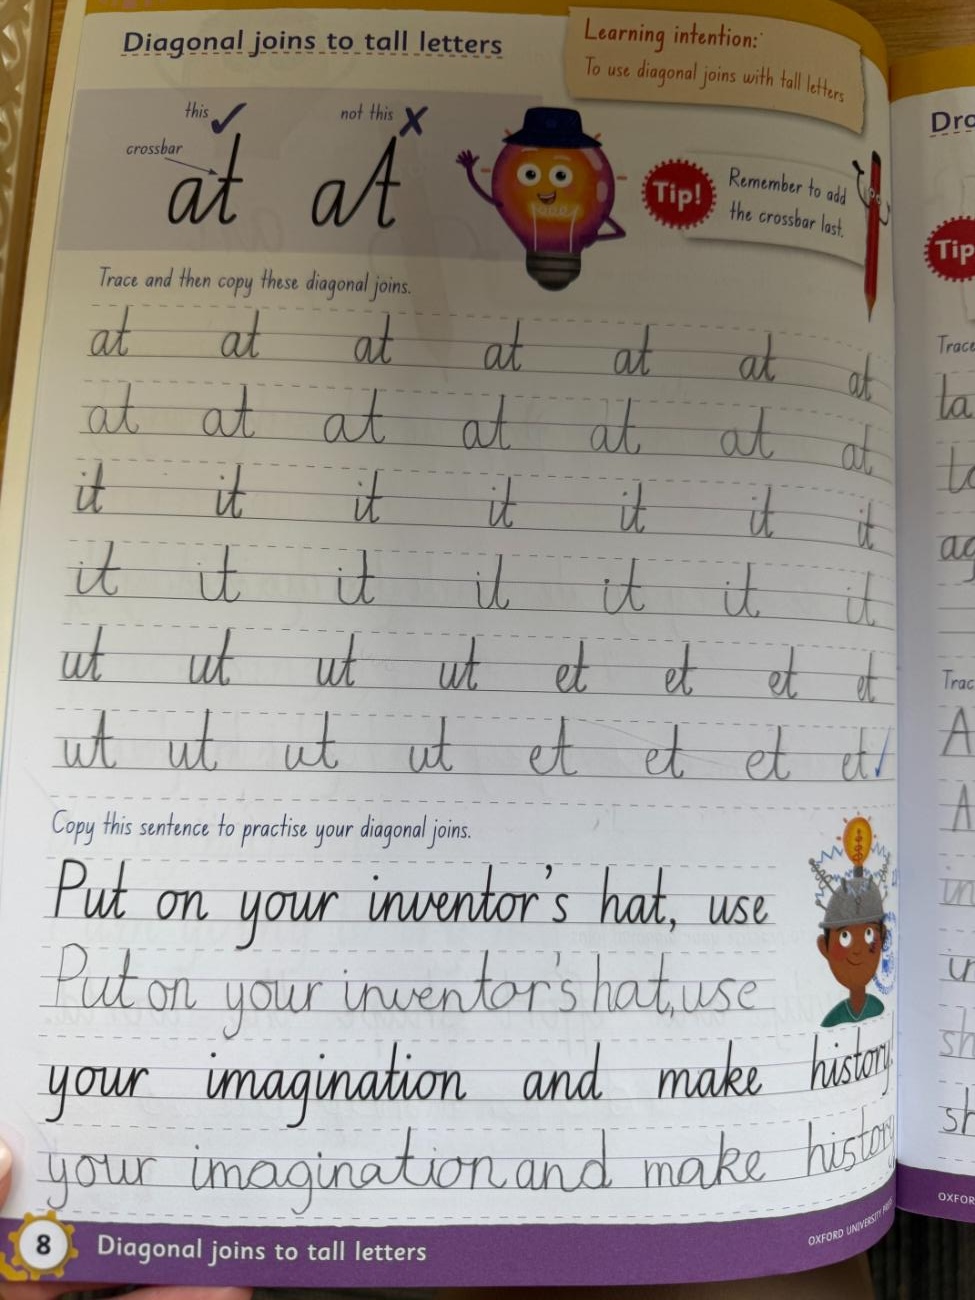 Diagonal joins to tall letters
Learning intention:
To use diagonal joins with tall letters
this
not this
crossbar
at at
Tip!
Remember to add
the crossbar last.
Trace and then copy these diagonal joins.
at at at at at at at
at at at at at at at
it it it it it it it
it it it it it it it
ut ut ut ut et et et et
ut ut ut ut et et et et
Copy this sentence to practise your diagonal joins.
Put on your inventor's hat, use
Put on your inventor's hat, use
your imagination and make history!
your imagination and make history
8 Diagonal joins to tall letters
OXFORD UNIVERSITY
Dro
Tip
Trace
ta
ag
Trac
A
A
in
sh
sh
OXFOR